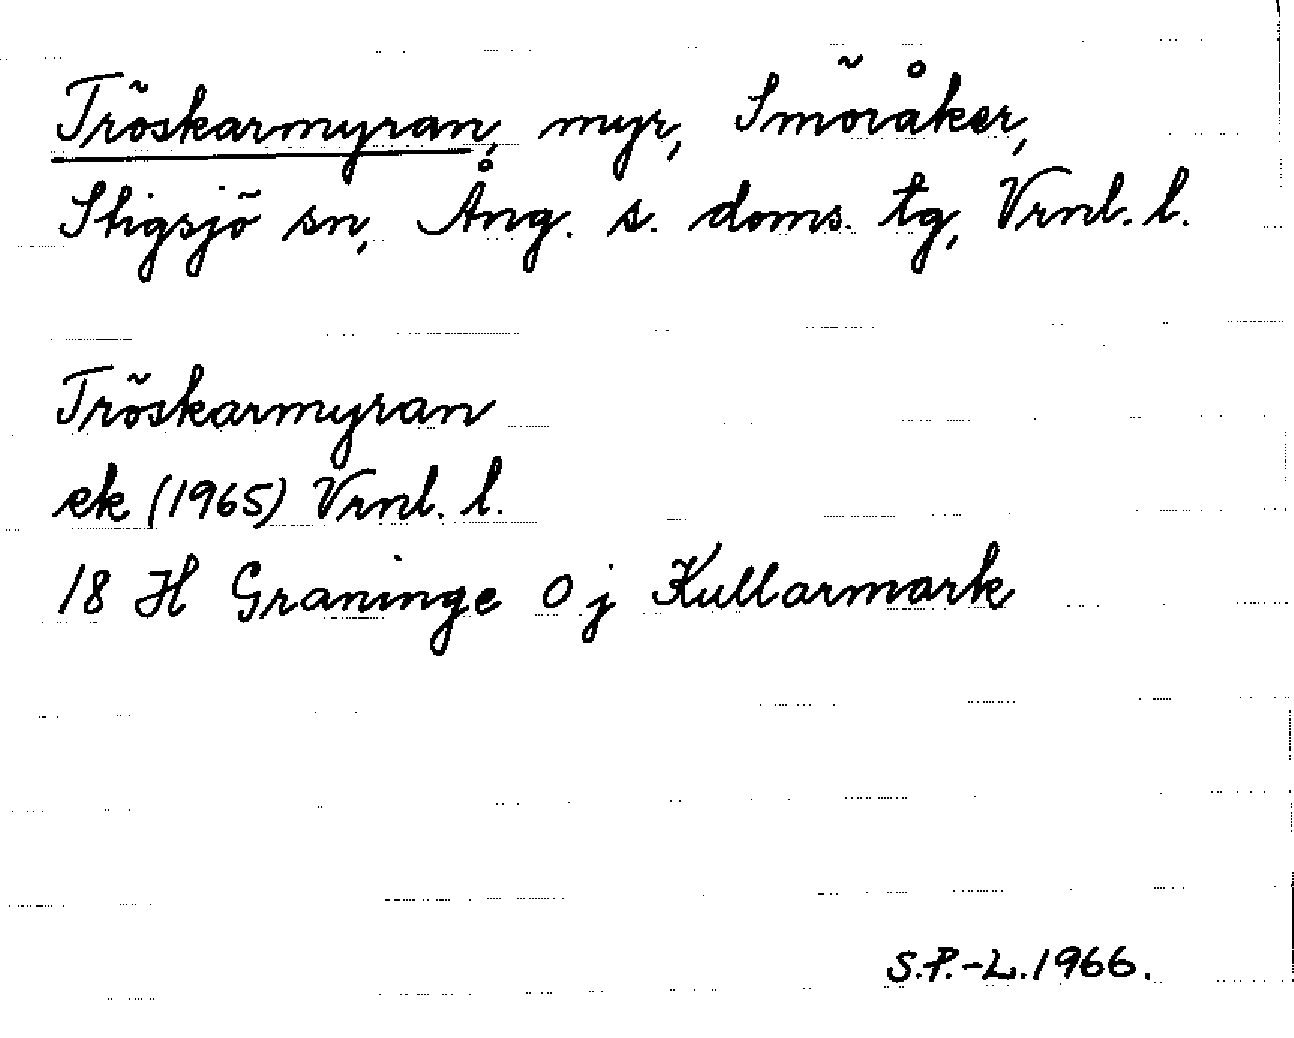 Tröskarmyran, myr, Smöråker,
Stigsjö sn, Ång. s. doms. tg, Vrnl. l.
Tröskarmyran
ek (1965) Vrnl. l.
18 H Graninge 0 j Kullarmark
S.P.-L. 1966.